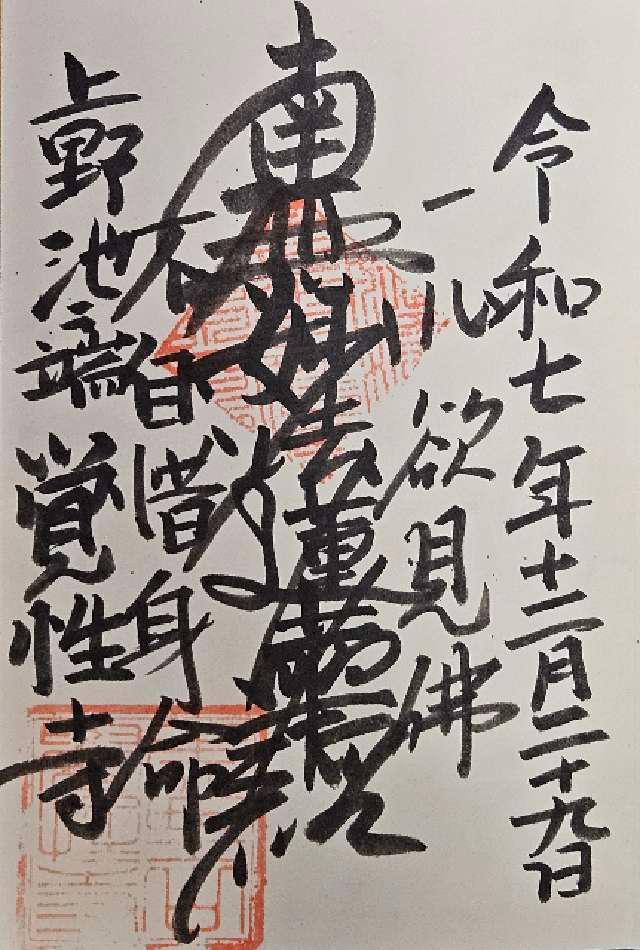 令和七年十二月二十九日
一心欲見佛
南無妙法蓮華経
不自惜身命
上野池端 覚性寺